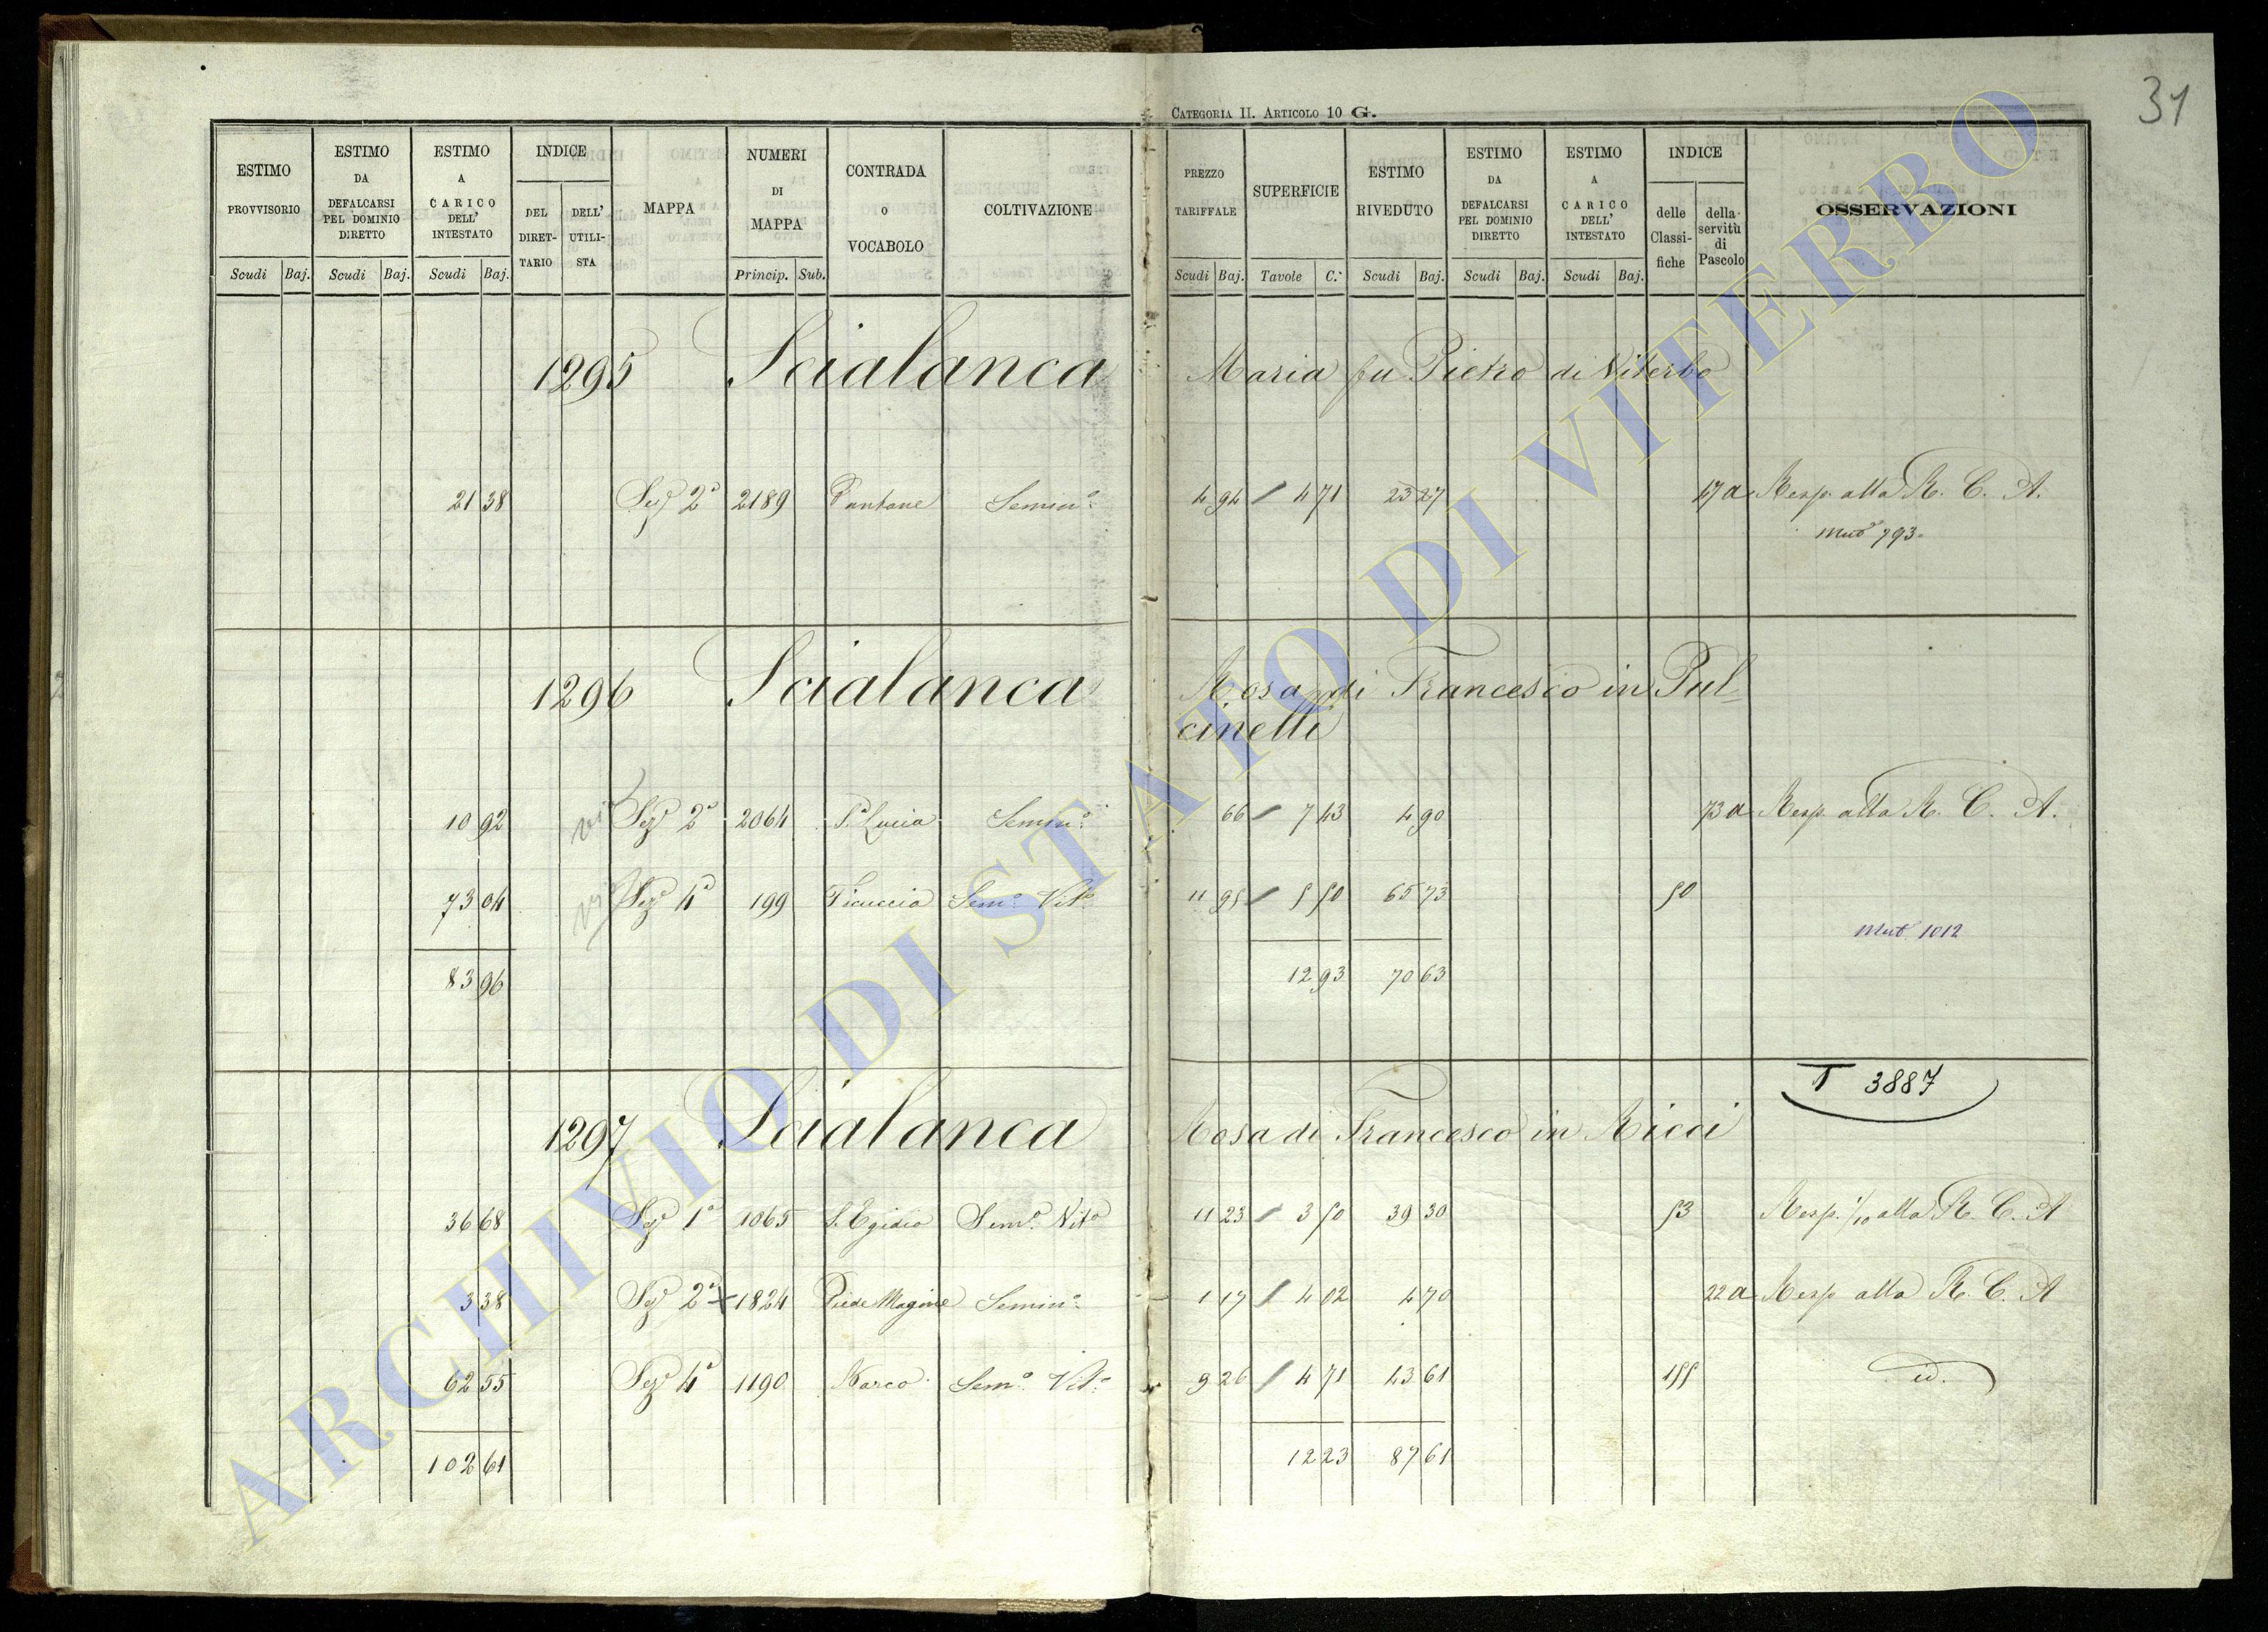 31
CATEGORIA II. ARTICOLO 10 G.
ESTIMO PROVVISORIO Scudi Baj.
ESTIMO DA DEFALCARSI PEL DOMINIO DIRETTO Scudi Baj.
ESTIMO A CARICO DELL' INTESTATO Scudi Baj.
INDICE DEL DIRETTARIO DELL' UTILISTA
MAPPA
NUMERI DI MAPPA Princip. Sub.
CONTRADA O VOCABOLO
COLTIVAZIONE
PREZZO TARIFFALE Scudi Baj.
SUPERFICIE Tavole C.
ESTIMO RIVEDUTO Scudi Baj.
ESTIMO DA DEFALCARSI PEL DOMINIO DIRETTO Scudi Baj.
ESTIMO A CARICO DELL' INTESTATO Scudi Baj.
INDICE delle Classifiche della servitù di Pascolo
OSSERVAZIONI
1295 Scialanca Maria fu Pietro di Viterbo
21 38 Sezᵉ 2ª 2189 Pantane Seminº 4 94 / 4 71 23 27 17a Resp. alla R. C. A.
Mutº 793
1296 Scialanca Rosa di Francesco in Pul-
cinelli
10 92 Sezᵉ 2ª 2064 Sª Lucia Seminº 66 / 7 43 4 90 73a Resp. alla R. C. A.
73 04 Sezᵉ 4ª 199 Ficuccia Semº Vitº 11 95 / 5 50 65 73 50
Mut. 1012
83 96 12 93 70 63
T 3887
1297 Scialanca Rosa di Francesco in Ricci
36 68 Sezᵉ 1ª 1065 S. Egidio Semº Vitº 11 23 / 3 50 39 30 53 Resp. 1/10 alla R. C. A
3 38 Sezᵉ 2ª 1824 Piede Magine Seminº 1 17 / 4 02 4 70 22a Resp alla R. C. A
62 55 Sezᵉ 4ª 1190 Marco Semº Vitº 9 26 / 4 71 43 61 155 id.
102 61 12 23 87 61
ARCHIVIO DI STATO DI VITERBO